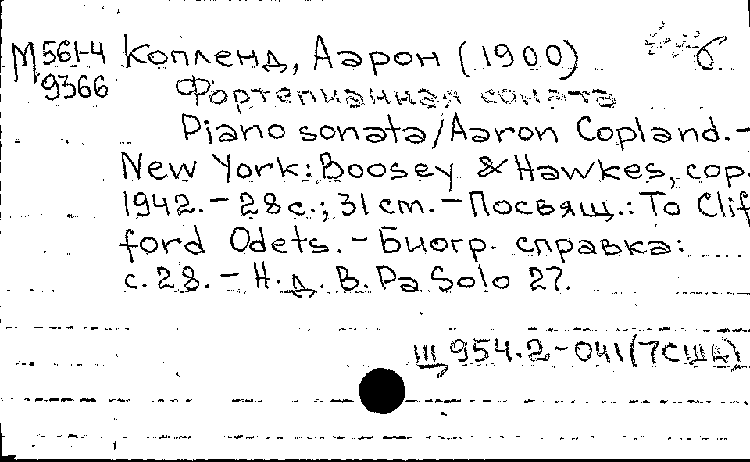 М 561-4 Копленд, Аарон (1900)
9366 Фортепианная соната
Piano sonata/Aaron Copland.-
New York: Boosey & Hawkes, cop.
1942.- 28 с.; 31 cm.- Посвящ.: To Clif
ford Odets.- Биогр. справка:
с. 28.- Н. д. B. Pa Solo 27.
Щ 954.2-041(7США)